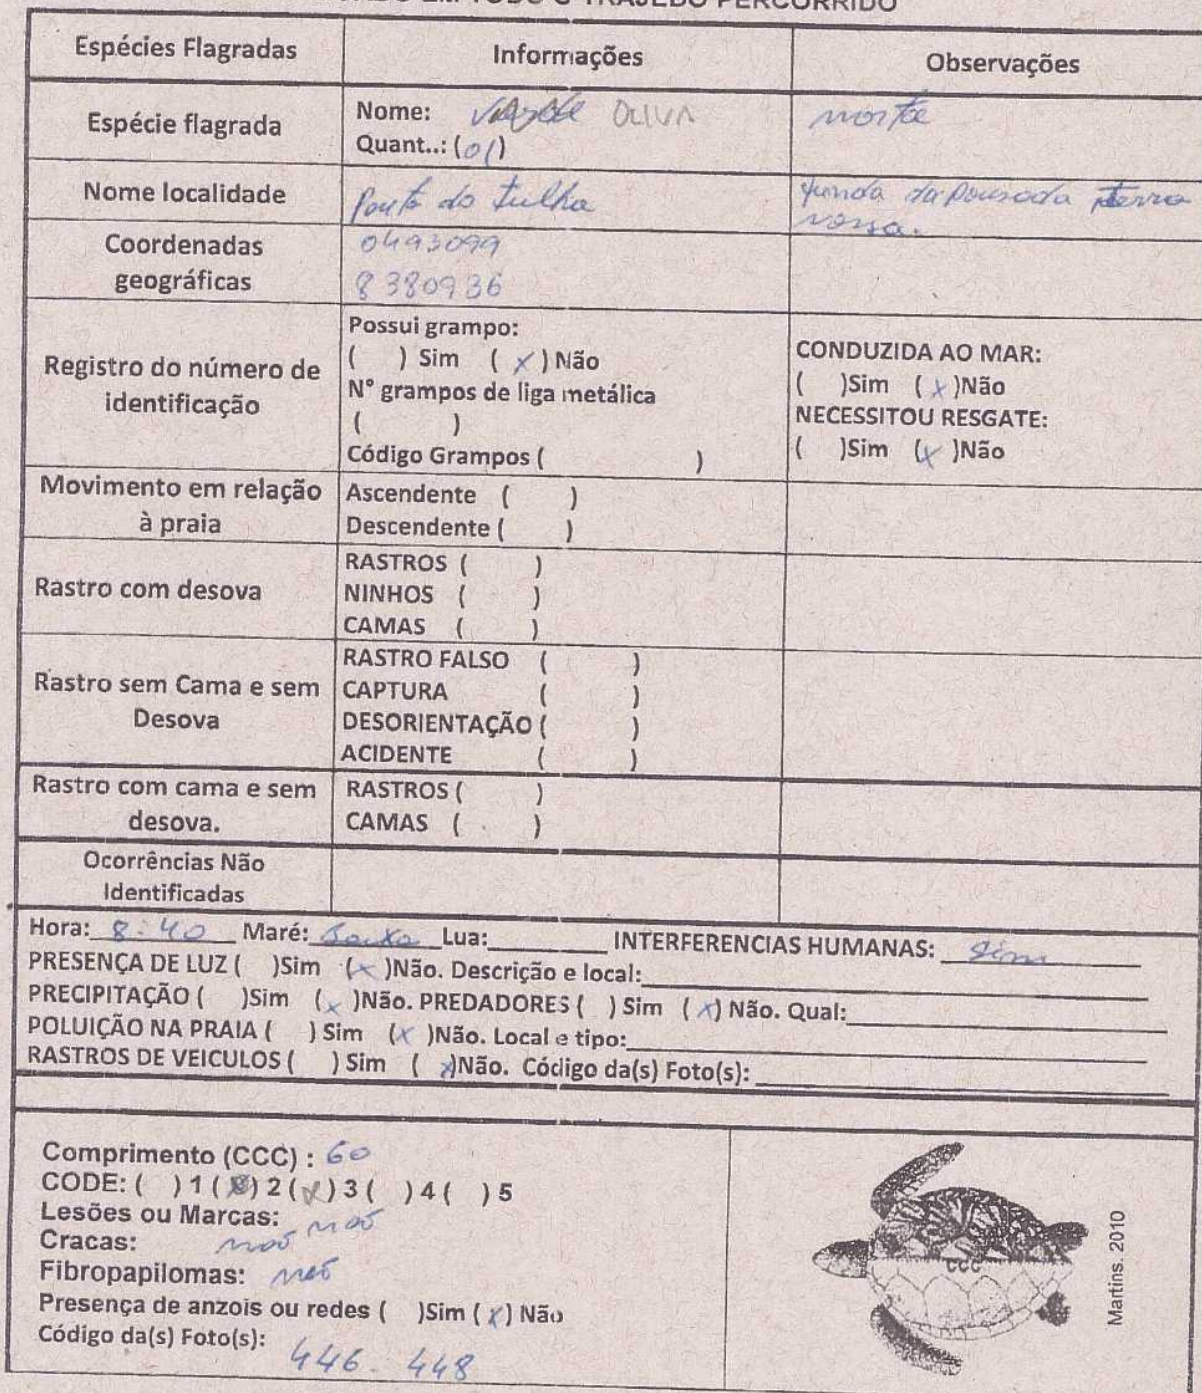 EM TODO O TRAJEDO PERCORRIDO
Espécies Flagradas Informações Observações
Espécie flagrada
Nome: OLIVA
Quant..: (01)
morta
Nome localidade
Ponta do Tulha
da pousada terra
nossa.
Coordenadas
geográficas
0493099
8380936
Registro do número de
identificação
Possui grampo:
( ) Sim ( x ) Não
N° grampos de liga metálica
( )
Código Grampos ( )
CONDUZIDA AO MAR:
( )Sim ( x )Não
NECESSITOU RESGATE:
( )Sim (x )Não
Movimento em relação
à praia
Ascendente ( )
Descendente ( )
Rastro com desova
RASTROS ( )
NINHOS ( )
CAMAS ( )
Rastro sem Cama e sem
Desova
RASTRO FALSO ( )
CAPTURA ( )
DESORIENTAÇÃO ( )
ACIDENTE ( )
Rastro com cama e sem
desova.
RASTROS ( )
CAMAS ( )
Ocorrências Não
Identificadas
Hora: 8:40 Maré: Baixa Lua:________ INTERFERENCIAS HUMANAS: Sim
PRESENÇA DE LUZ ( )Sim (x )Não. Descrição e local:
PRECIPITAÇÃO ( )Sim (x )Não. PREDADORES ( ) Sim ( x) Não. Qual:
POLUIÇÃO NA PRAIA ( ) Sim (x )Não. Local e tipo:
RASTROS DE VEICULOS ( ) Sim ( x)Não. Código da(s) Foto(s):
Comprimento (CCC) : 60
CODE: ( ) 1 (x) 2 (x) 3 ( ) 4 ( ) 5
Lesões ou Marcas: não
Cracas: não
Fibropapilomas: não
Presença de anzois ou redes ( )Sim ( x) Não
Código da(s) Foto(s): 446 - 448
CCC
Martins. 2010